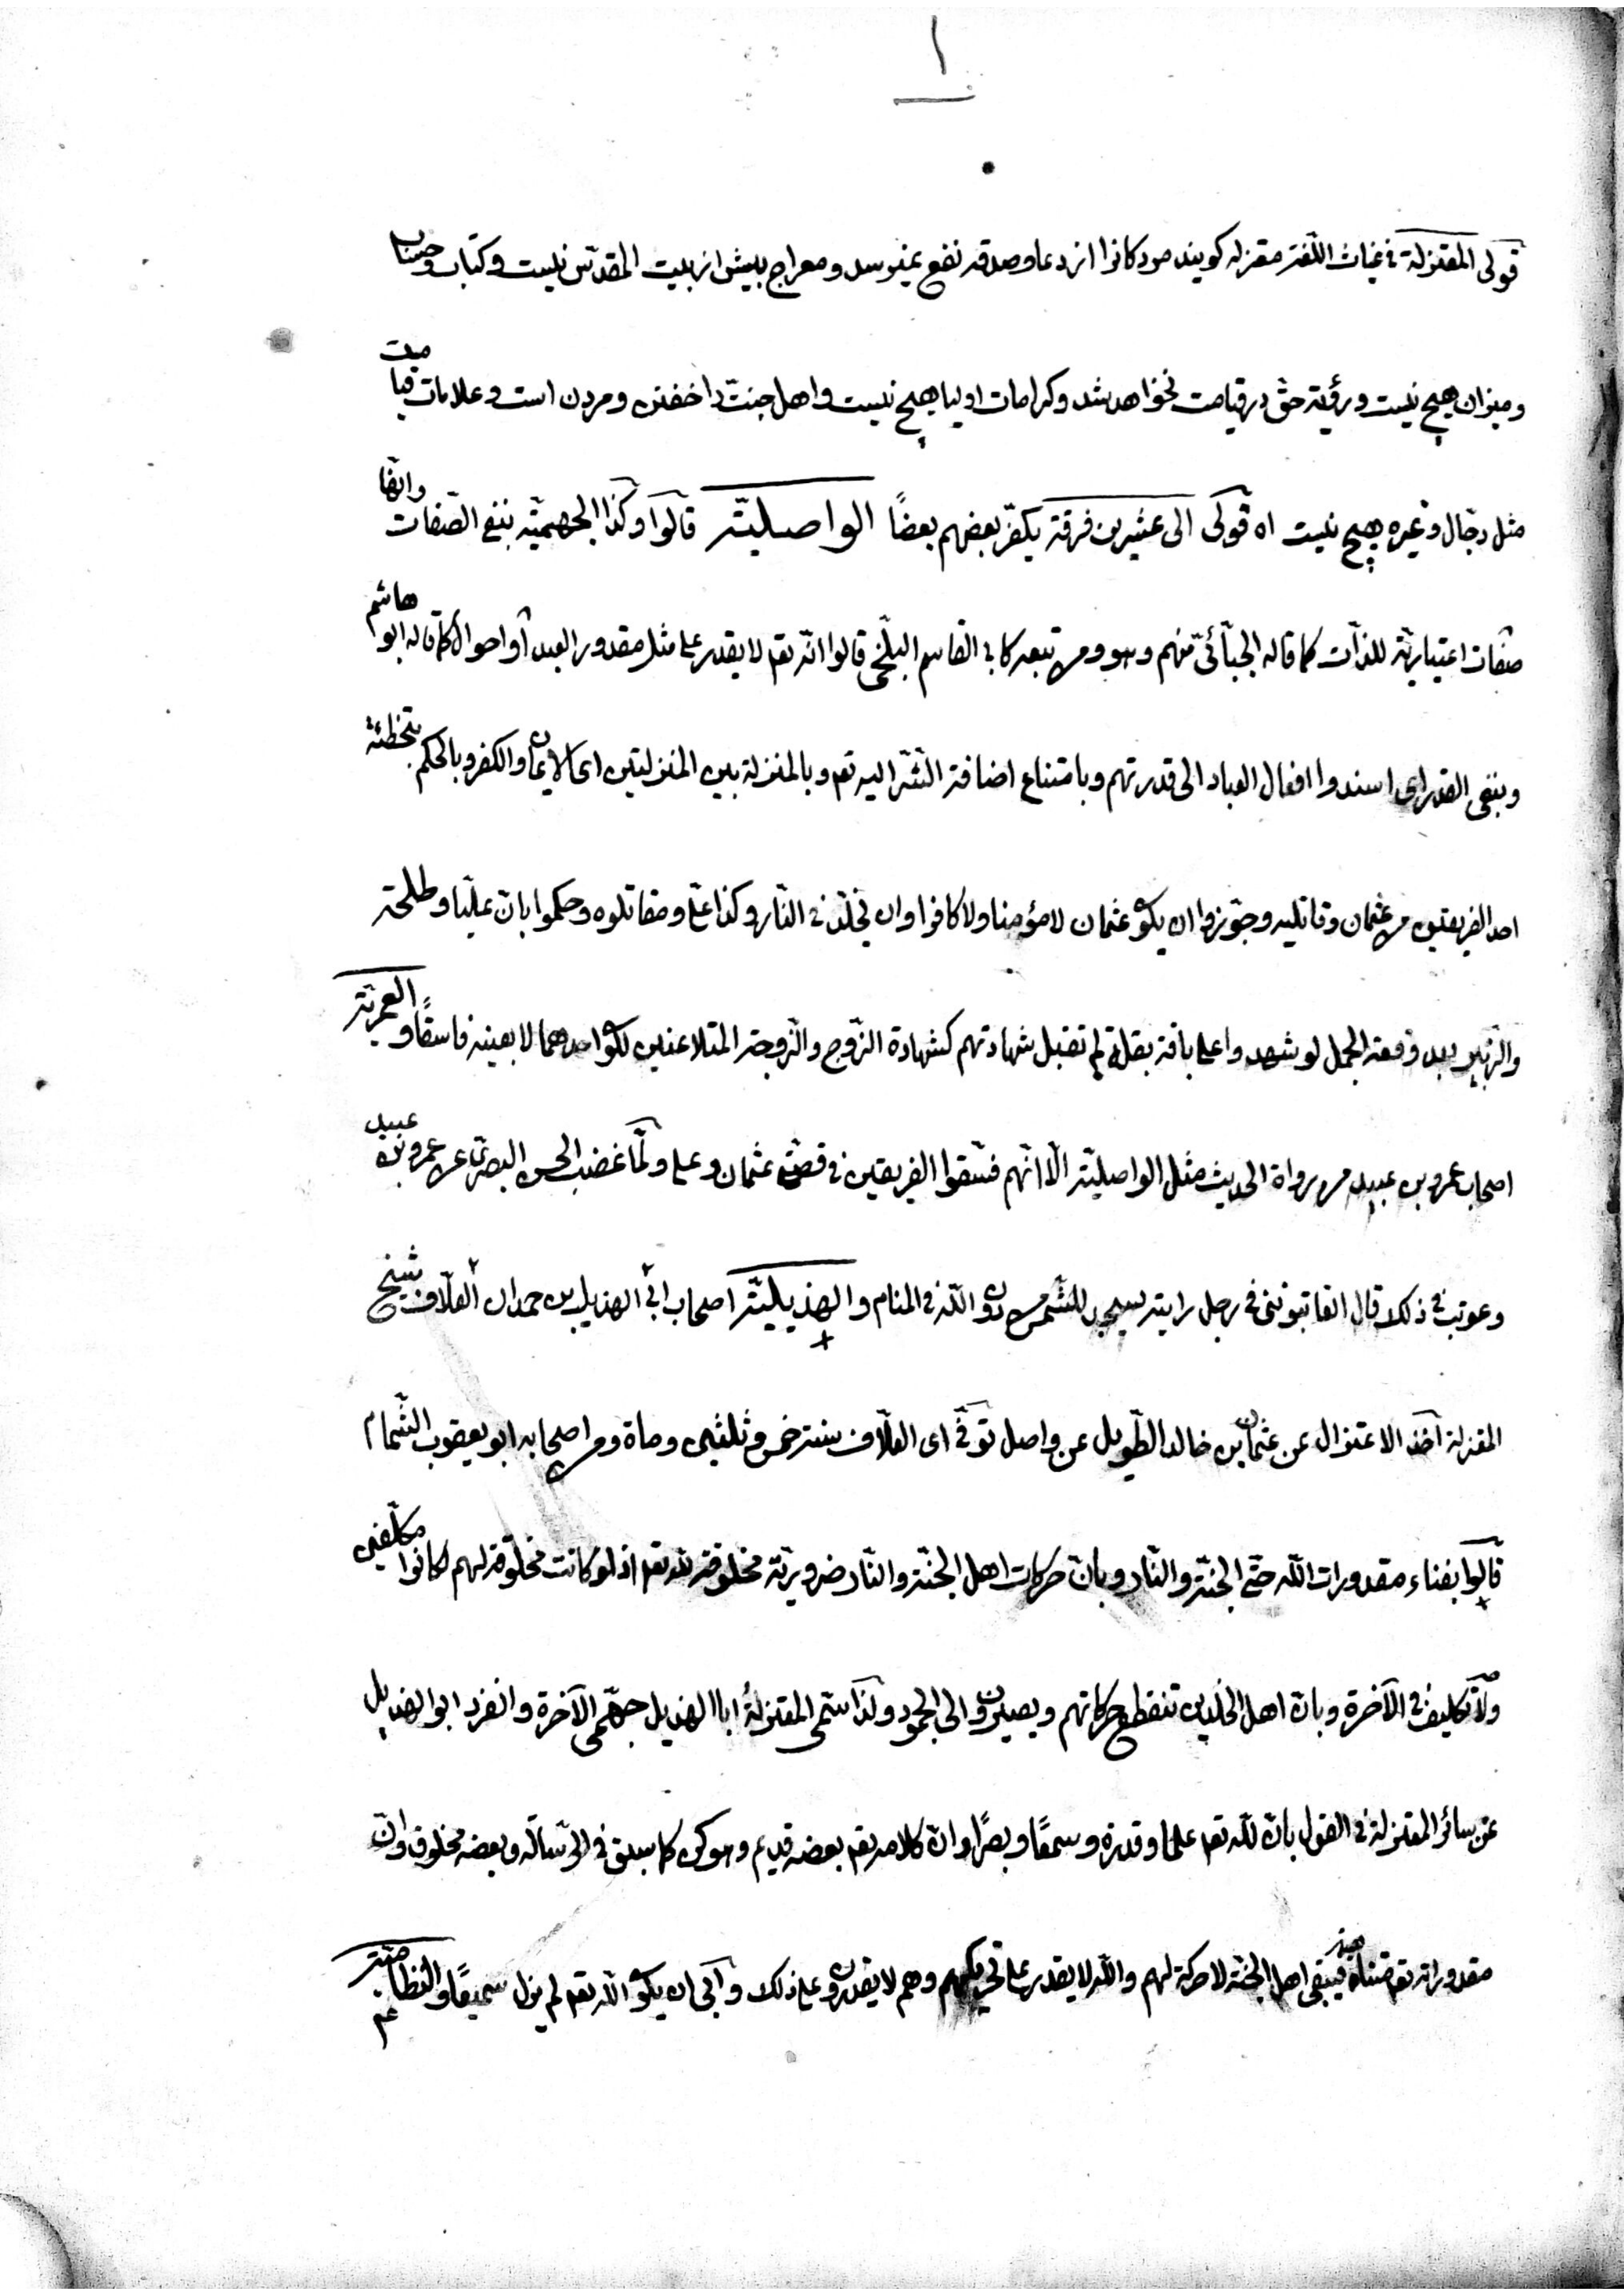 ١
قولى المعتزلة فى غياث اللّغة معتزله كويند مردكانرا از دعا وصدقه نفع نميرسد ومعراج بيش از بيت المقدّس نيست وكتاب وحساب
وميزان هيچ نيست ورؤية حقّ در قيامت نخواهد شد وكرامات اوليا هيچ نيست واهل جنّت را خفتن ومردن است وعلامات قيامت
مثل دجّال وغيره هيچ نيست اه قولى الى عشرين فرقة يكفّر بعضهم بعضًا الواصليّة قالوا وكذا الجهميّة بنفى الصّفات وانّها
صفات اعتباريّة للذّات كما قاله الجبّائىّ منهم وهو ومن تبعه كابى القاسم البلخى قالوا انّه تعا لا يقدر على مثل مقدور العبد أو احوال كما قاله ابو هاشم
وبنفى القدر اى اسندوا افعال العباد الى قدرتهم وبامتناع اضافة الشّرّ اليه تعا وبالمنزلة بين المنزلتين اى الايمان والكفر وبالحكم بتخطئة
احد الفريقين من عثمان وقاتليه وجوّزوا ان يكون عثمان لا مؤمنا ولا كافرا وان يخلّد فى النّار وكذا علىّ ومقاتلوه وحكموا بانّ عليّا وطلحة
والزّبير بعد وقعة الجمل لو شهدوا على باقة بقلة لم تقبل شهادتهم كشهادة الزّوج والزّوجة المتلاعنين لكون احدهما لا بعينه فاسقًا والعمريّة
اصحاب عمرو بن عبيد من رواة الحديث مثل الواصليّة الّا انّهم فسّقوا الفريقين فى قصّة عثمان وعلى ولمّا غضب الحسن البصرىّ على عمرو بن عبيد
وعوتب فى ذلك قال اتعاتبوننى فى رجل رايته يسجد للشّمس دون اللّه فى المنام والهذيليّة اصحاب ابى الهذيل بن حمدان العلّاف شيخ
المعتزلة اخذ الاعتزال عن عثمان بن خالد الطّويل عن واصل توفّى اى العلّاف سنة خمس وثلثين وماة ومن اصحابه ابو يعقوب الشّحّام
قالوا بفناء مقدورات اللّه حتّى الجنّة والنّار وبانّ حركات اهل الجنّة والنّار ضروريّة مخلوقة للّه تعا اذ لو كانت مخلوقة لهم لكانوا مكلّفين
ولا تكليف فى الآخرة وبانّ اهل الخلدين تنقطع حركاتهم ويصيرون الى الجمود ولذا سمّى المعتزلة ابا الهذيل جهمىّ الآخرة وانفرد ابو الهذيل
عن سائر المعتزلة فى القول بانّ للّه تعا علما وقدرة وسمعًا وبصرًا وانّ كلامه تعا بعضه قديم وهو كن كما سبق فى الرّسالة وبعضه مخلوق وانّ
مقدوراته تعا متناهية فيبقى اهل الجنّة لا حركة لهم واللّه لا يقدر على تحريكهم وهم لا يقدرون على ذلك وابى ان يكون اللّه تعا لم يزل سميعًا والنّظاميّة